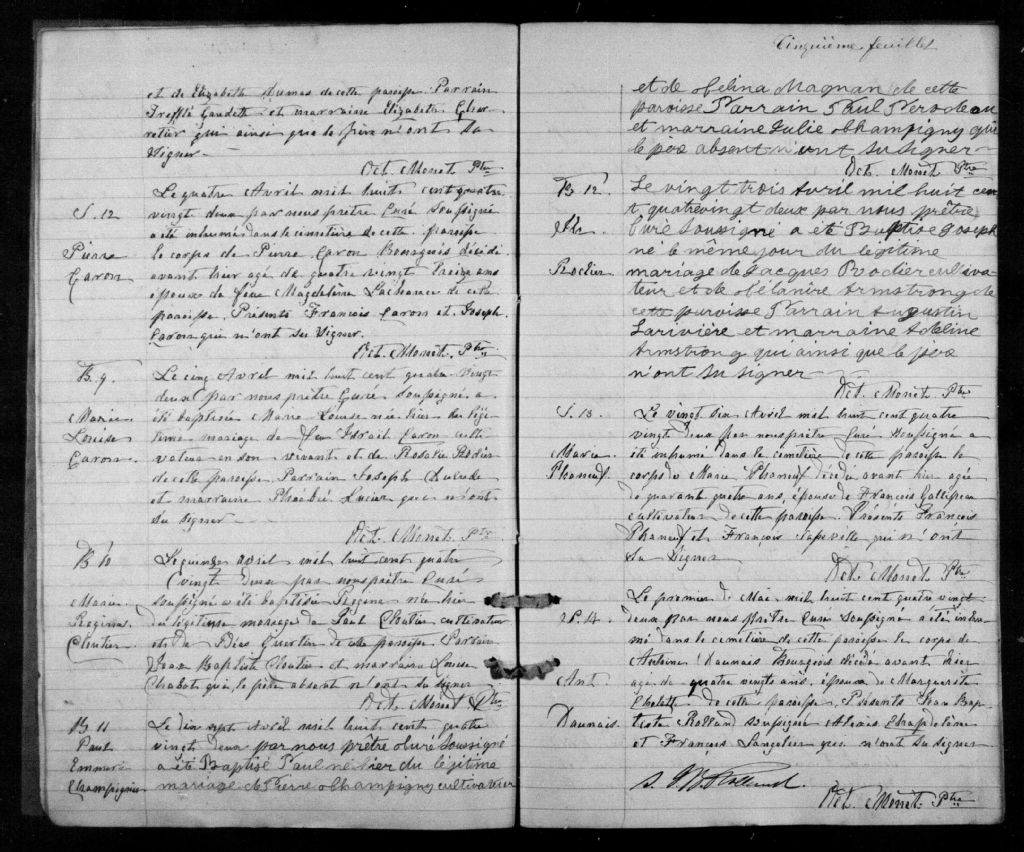 et de Elizabeth Dumas de cette paroisse Parrain
Trefflé Gaudette et marraine Elizabeth
qui ainsi que le père n'ont su
signer
Oct. Monet Ptre
S. 12
Pierre
Caron
Le quatre Avril mil huits cent quatre
vingt deux par nous prêtre Curé Soussigné
a été inhumé dans le cimetière de cette paroisse
le corps de Pierre Caron Bourgeois décédé
avant hier agé de quatre vingt Treize ans
époux de feue Magdeleine Lachance de cette
paroisse. Présents François Caron et Joseph
Caron qui n'ont su Signer.
Oct. Monet. Ptre
B. 9.
Marie
Louise
Caron.
Le cinq Avril mil huit cent quatre vingt
deux par nous prêtre Curé Soussigné a
été baptisée Marie Louise née hier du légi-
time mariage de feu Israil Caron culti
vateur en son vivant et de Rosalie Rodier
de cette paroisse Parrain Joseph Dulude
et marraine Phoebé Lucier qui n'ont
su signer
Oct. Monet. Ptre
B 10
Marie
Regina
Cloutier
Le quinze avril mil huit cent quatre
vingt deux par nous prêtre Curé
soussigné a été baptisée Regina née hier
du légitime mariage de Paul Cloutier cultivateur
et de de cette paroisse. Parrain
Jean Baptiste Cloutier et marraine Louise
Chabot qui, le père absent n'ont su signer
Oct. Monet Ptre
B 11
Paul
Champigny
Le dix sept Avril mil huit cent quatre
vingt deux par nous prêtre Curé Soussigné
a été Baptisé Paul né hier du légitime
mariage de Pierre Champigny cultivateur
Cinquième feuillet
et de Mélina Magnan de cette
paroisse Parrain Paul
et marraine Julie Champigny qui
le père absent n'ont su signer
Oct. Monet Ptre
B 12
Jh.
Rodier
Le vingt trois Avril mil huit cen
t quatrevingt deux par nous prêtre
Curé soussigné a été Baptisé Joseph
né le même jour du légitime
mariage de Jacques Rodier cultiva-
teur et de Mélanire Armstrong de
cette paroisse Parrain Augustin
Larivière et marraine Adeline
Armstrong qui ainsi que le père
n'ont su signer
Oct. Monet Ptre
S. 13.
Marie
Phaneuf
Le vingt six Avril mil huit cent quatre
vingt deux par nous prêtre Curé soussigné a
été inhumé dans le cimetière de cette paroisse le
corps de Marie Phaneuf décédée avant hier agée
de quarante quatre ans, épouse de François Gallipeau
cultivateur de cette paroisse. Présents François
Phaneuf et François qui n'ont
su signer
Oct. Monet Ptre
S. 14.
Ant
Daunais.
Le premier de Mai mil huit cent quatre vingt
deux par nous prêtre Curé soussigné a été inhu
mé dans le cimetière de cette paroisse le corps de
Antoine Daunais Bourgeois décédé avant hier
agé de quatre vingts ans. époux de Marguerite
de cette paroisse, Présents Jean Bap-
tiste Rolland soussigné Alexis Chapdelene
et François Langelier qui n'ont su signer
J. B. Rolland.
Oct. Monet. Ptre